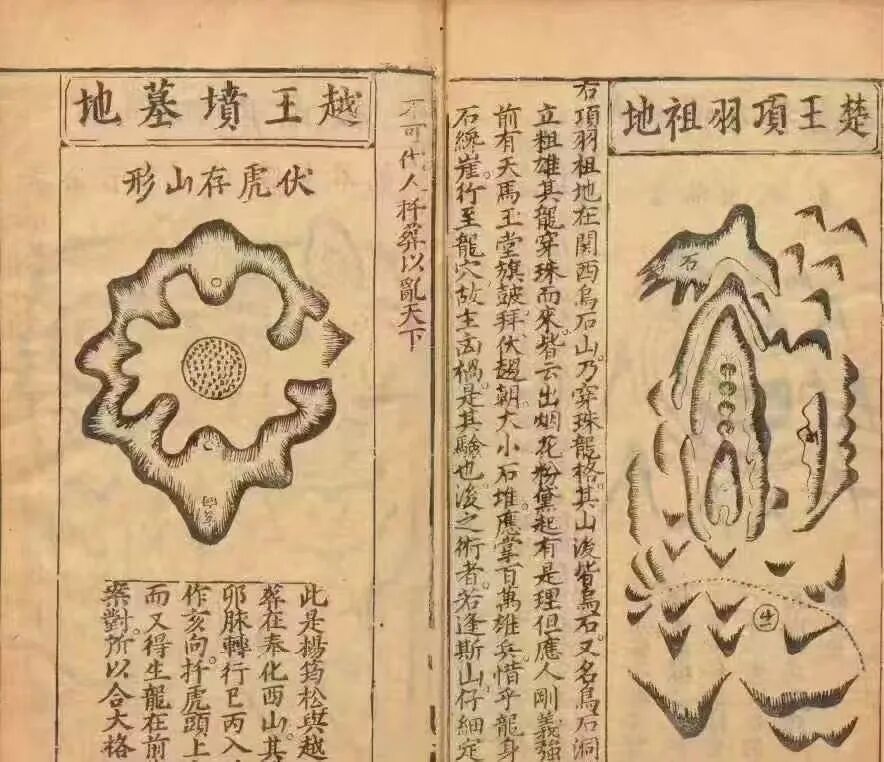 楚王項羽祖地
石
右項羽祖地在関西烏石山。乃穿珠龍格其山後皆烏石。又名烏石洞
立祖雄其龍穿珠而來。皆云出烟花粉黛起有是理但應人剛義強
前有天馬玉堂旗皷。拜伏趨朝。大小石堆。應掌百萬雄兵。惜乎龍身
石繞崖。行至龍穴。故主凶禍。是其驗也。後之術者。若逢斯山。仔細定
不可代人扦葬以亂天下
越王墳墓地
伏虎存山形
此是楊筠松與越
葬在奉化西山。其
卯脉轉行巳丙入
作亥向。扦虎頭上
而又得生龍在前
案對。所以合大格